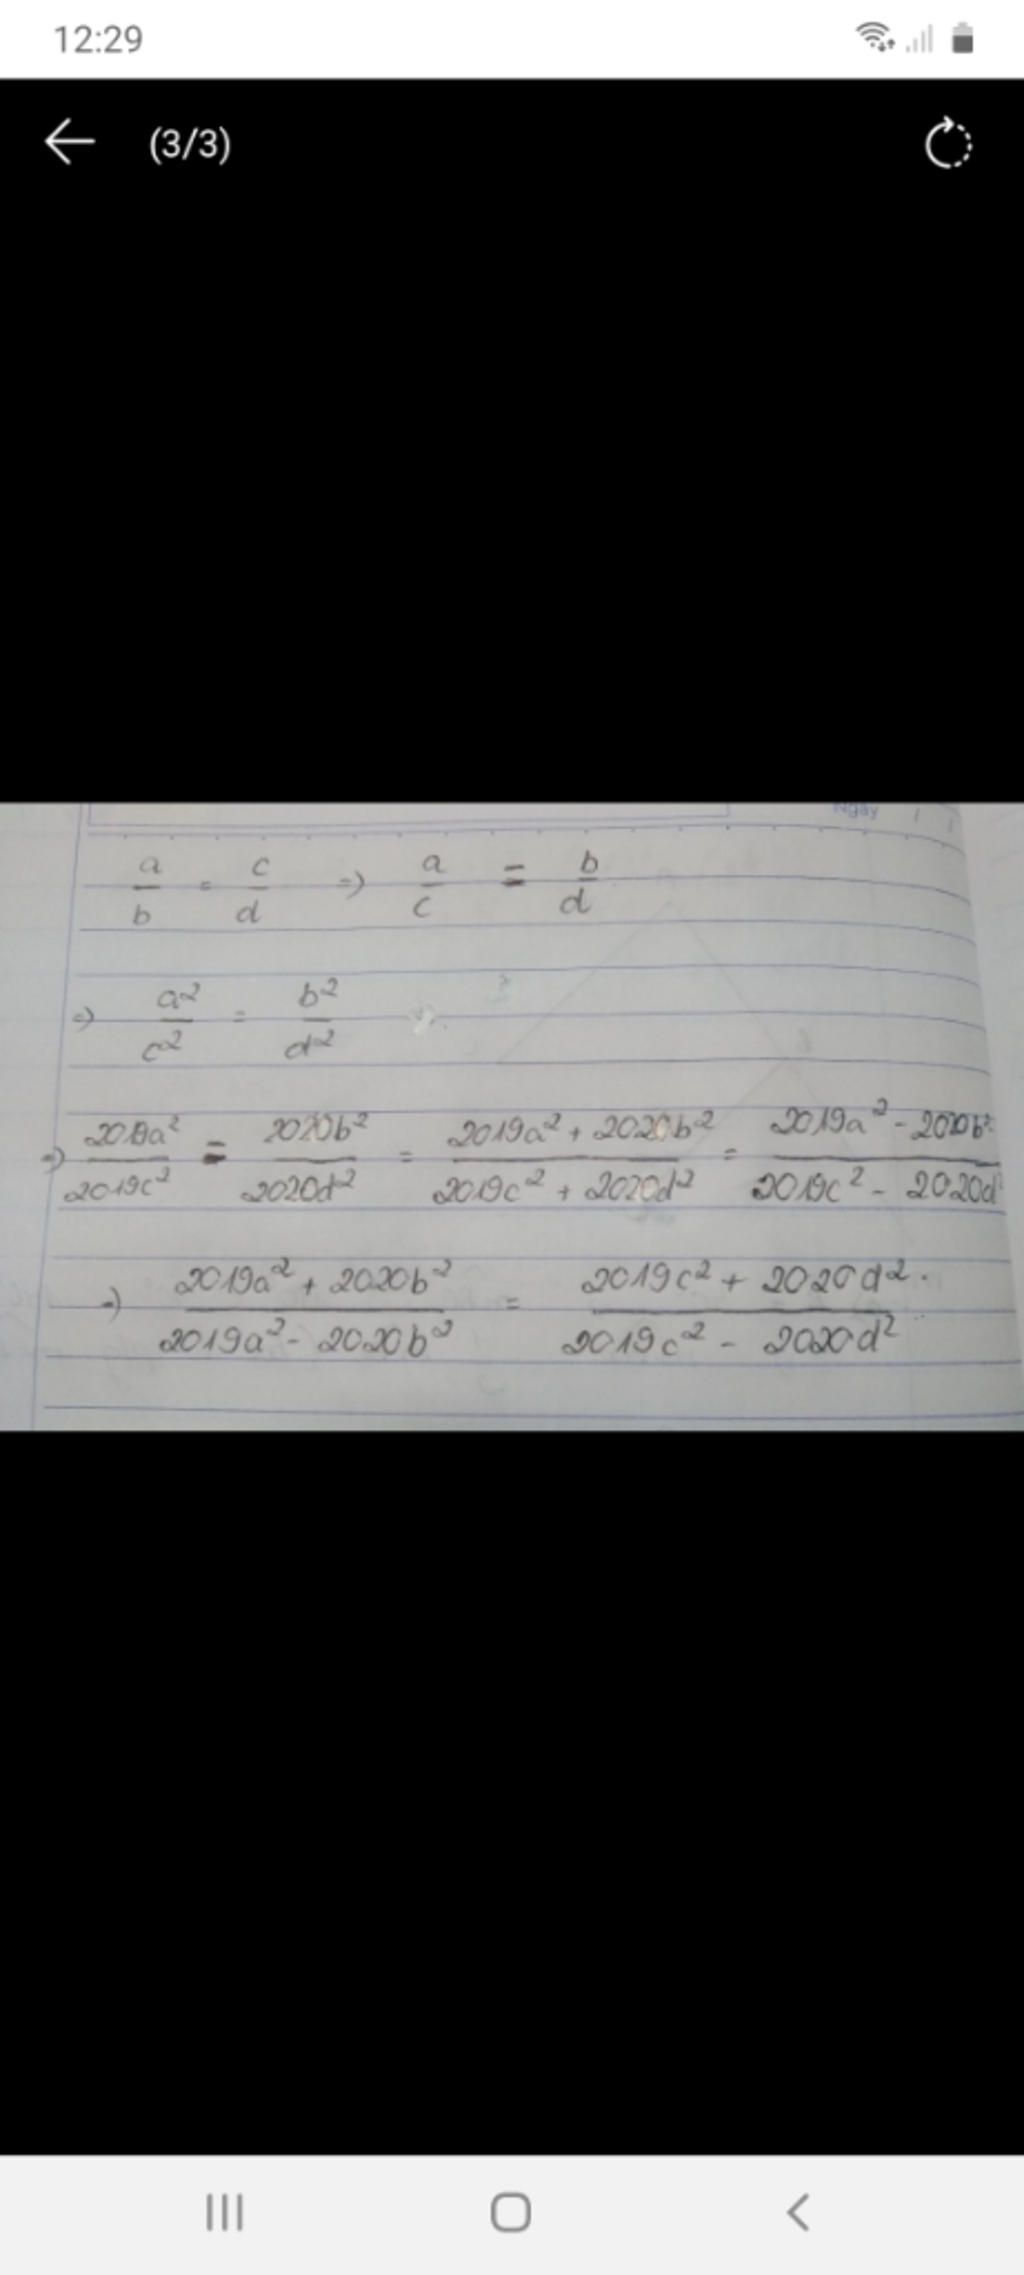 12:29
(3/3)
Ngày / /
a/b = c/d => a/c = b/d
=> a²/c² = b²/d²
=> 2019a²/2019c² = 2020b²/2020d² = (2019a² + 2020b²)/(2019c² + 2020d²) = (2019a² - 2020b²)/(2019c² - 2020d²)
=> (2019a² + 2020b²)/(2019a² - 2020b²) = (2019c² + 2020d²)/(2019c² - 2020d²).